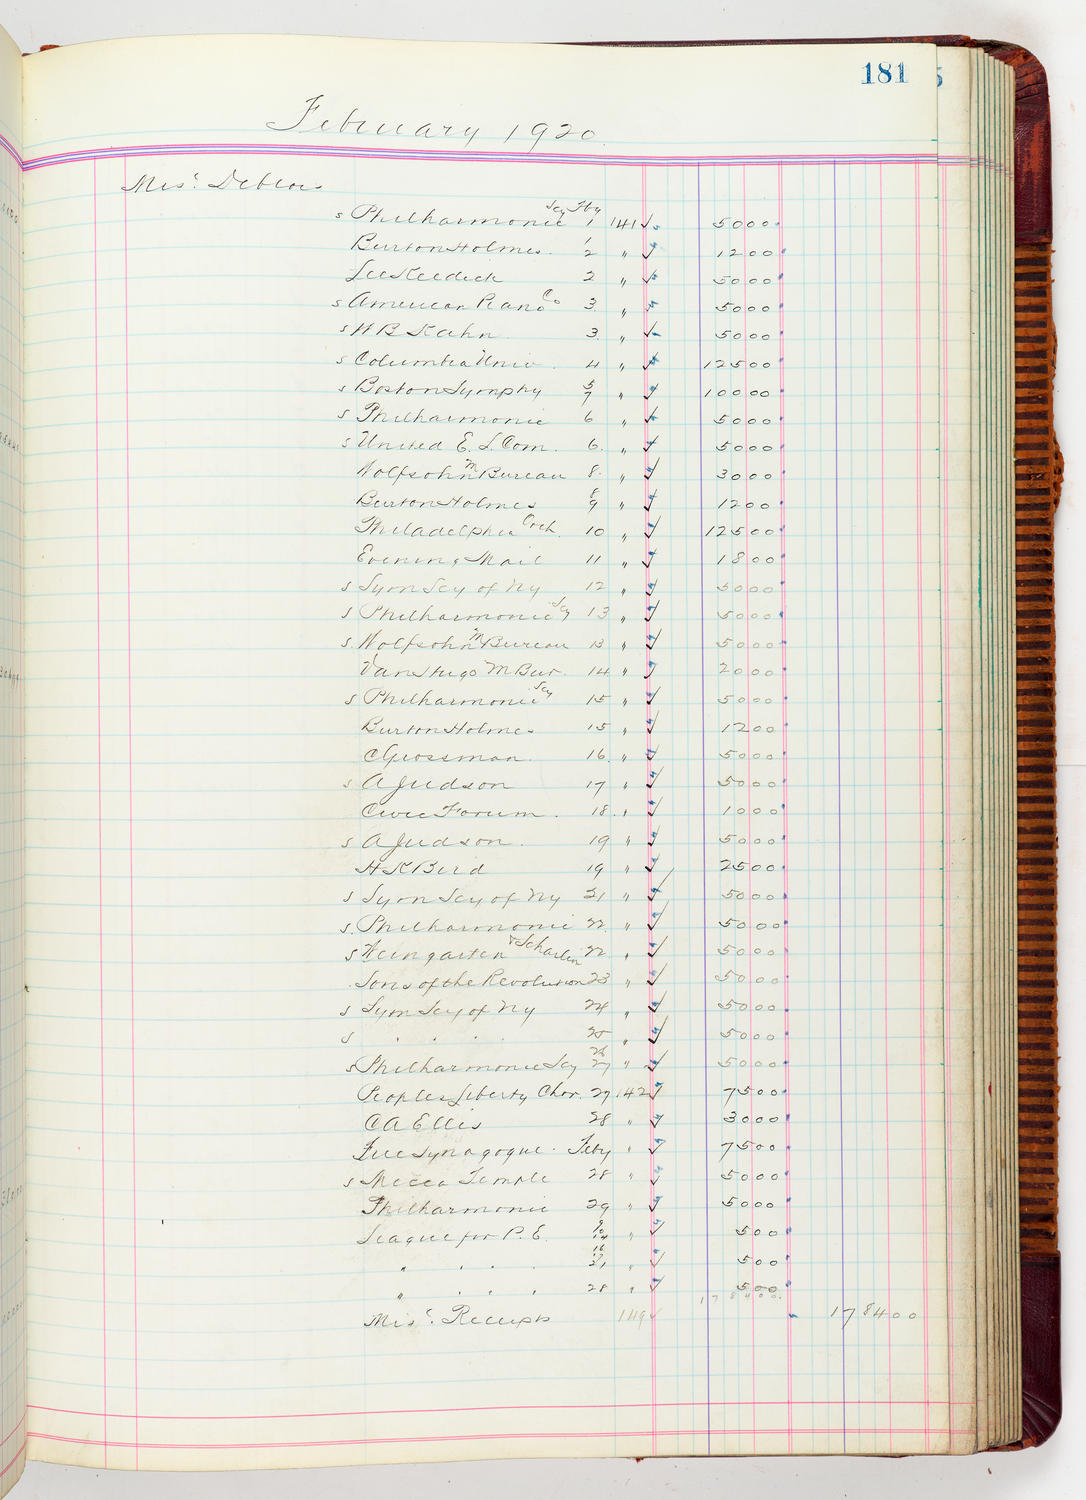 181
February 1920
Misc. Debtors
s Philharmonic Scy Feby 1 141 ✓ 5000
Burton Holmes. 1/2 " ✓ 1200
Lee Keedick 2 " ✓ 5000
s American Piano Co 3. " 5000
s W B Kahn 3. " ✓ 5000
s Columbia Univ. 4 " ✓ 12500
s Boston Symphy 5/7 " ✓ 10000
s Philharmonic 6 " ✓ 5000
s United E. L. Com. 6. " ✓ 5000
Wolfsohn M Bureau 8. " ✓ 3000
Burton Holmes 8/9 " ✓ 1200
Philadelphia Orch. 10 " ✓ 12500
Evening Mail 11 " ✓ 1800
s Sym Scy of Ny 12 " ✓ 5000
s Philharmonic Scy 13 " ✓ 5000
s. Wolfsohn M Bureau 13 " ✓ 5000
Van Hugo M Bur. 14 " ✓ 2000
s Philharmonic Scy 15 " ✓ 5000
Burton Holmes 15 " ✓ 1200
C Grossman. 16. " ✓ 5000
s A Judson 17 " ✓ 5000
Civic Forum. 18. " ✓ 1000
s A Judson. 19 " ✓ 5000
H K Bird 19 " ✓ 2500
s Sym Scy of Ny 21 " ✓ 5000
s. Philharmonic 22. " ✓ 5000
s Weingarten & Scharlin 22 " ✓ 5000
Sons of the Revolution 23 " ✓ 5000
s Sym Scy of Ny 24 " ✓ 5000
s . . . . 25 " ✓ 5000
s Philharmonic Scy 26/27 " ✓ 5000
Peoples Liberty Chor. 29 142 ✓ 7500
C A Ellis 28 " ✓ 3000
Free Synagogue. Feby " ✓ 7500
s Mecca Temple 28 " ✓ 5000
Philharmonic 29 " ✓ 5000
League for P. E. 9 10 14 " ✓ 500
" . . . 16 17 21 " ✓ 500
" . . . 28 " ✓ 500
178400
Misc. Receipts 119 ✓ 178400